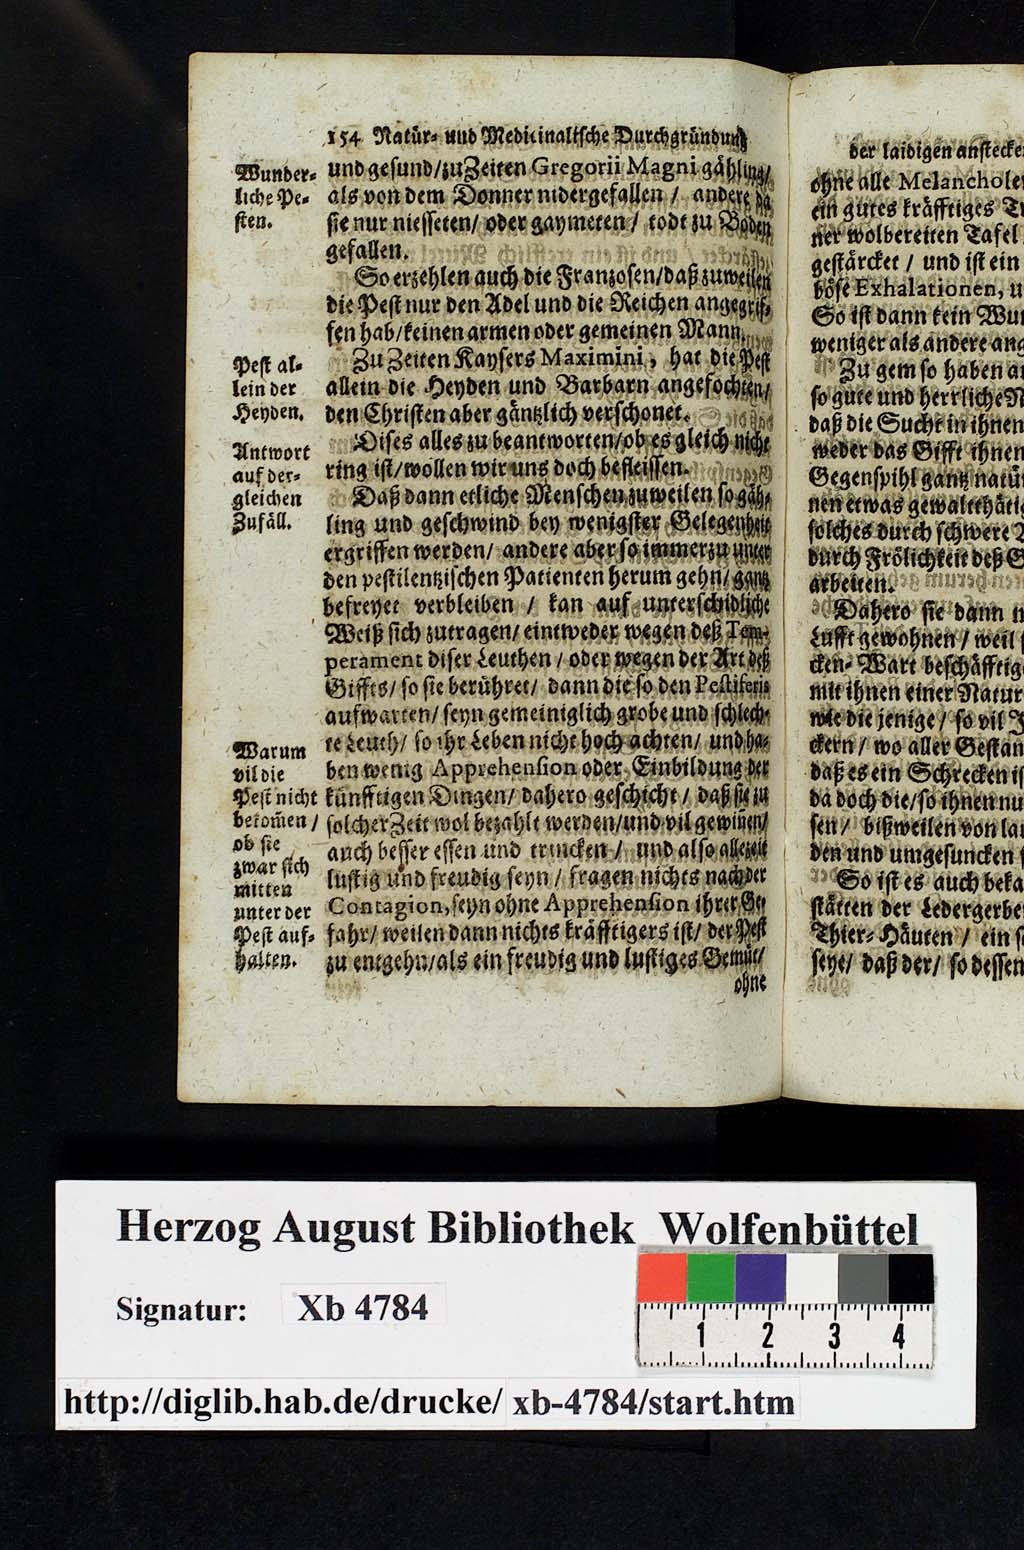 154 Natür- und Medicinalische Durchgründung
Wunder-
liche Pe-
sten.
und gesund/zu Zeiten Gregorii Magni gähling/
als von dem Donner nidergefallen / andere da
sie nur niesseten/ oder gaymeten / todt zu Boden
gefallen.
So erzehlen auch die Franzosen/daß zuweilen
die Pest nur den Adel und die Reichen angegrif-
fen hab/keinen armen oder gemeinen Mann.
Pest al-
lein der
Heyden.
Zu Zeiten Kaysers Maximini, hat die Pest
allein die Heyden und Barbarn angefochten/
den Christen aber gäntzlich verschonet.
Antwort
auf der-
gleichen
Zufäll.
Dises alles zu beantworten/ob es gleich nicht
ring ist/wollen wir uns doch befleissen.
Daß dann etliche Menschen zuweilen so gäh-
ling und geschwind bey wenigster Gelegenheit
ergriffen werden/ andere aber so immerzu unter
den pestilentzischen Patienten herum gehn/ gantz
befreyet verbleiben / kan auf unterschidliche
Weiß sich zutragen/ eintweder wegen deß Tem-
perament diser Leuthen / oder wegen der Art deß
Giffts/ so sie berühret/ dann die so den Pestiferis
aufwarten/ seyn gemeiniglich grobe und schlech-
te Leuth/ so ihr Leben nicht hoch achten/ und ha-
ben wenig Apprehension oder Einbildung der
künfftigen Dingen/ dahero geschicht / daß sie zu
solcher Zeit wol bezahlt werden/und vil gewiñen/
auch besser essen und trincken / und also allezeit
lustig und freudig seyn / fragen nichts nach der
Contagion, seyn ohne Apprehension ihrer Ge-
fahr/ weilen dann nichts kräfftigers ist/ der Pest
zu entgehn/als ein freudig und lustiges Gemüt/
ohne
Warum
vil die
Pest nicht
bekom̃en /
ob sie
zwar sich
mitten
unter der
Pest auf-
halten.
der laidigen anstecke
ohne alle Melancholey
ein gutes kräfftiges
ner wolbereiten Tafel
gestärcket / und ist ein
böse Exhalationen, u
So ist dann kein Wun
weniger als andere ang
Zu gem so haben a
so gute und herrliche
daß die Sucht in ihnen
weder das Gifft ihnen
Gegenspihl gantz natür
nen etwas gewaltthätig
solches durch schwere
durch Frölichkeit deß
arbeiten.
Dahero sie dann n
Lufft gewohnen / weil
cken-Wart beschäfftig
mit ihnen einer Natur
wie die jenige / so vil
ckern / wo aller Gestan
daß es ein Schrecken is
da doch die/so ihnen nu
sen / bißweilen von
den und umgesuncken
So ist es auch beka
stätten der Ledergerbe
Thier-Häuten / ein
seye/ daß der/ so dessen
Herzog August Bibliothek Wolfenbüttel
Signatur: Xb 4784
1 2 3 4
http://diglib.hab.de/drucke/ xb-4784/start.htm